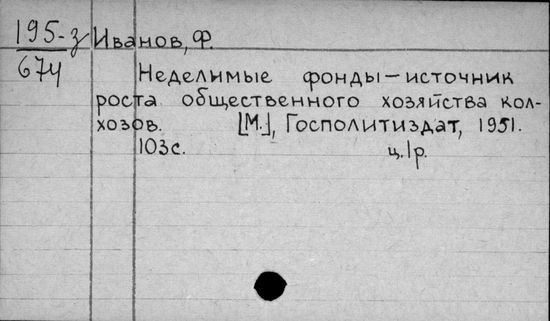 195-з Иванов, Ф.
674
Неделимые фонды — источник
роста общественного хозяйства кол-
хозов. [М.], Госполитиздат, 1951.
103с. ц.1р.